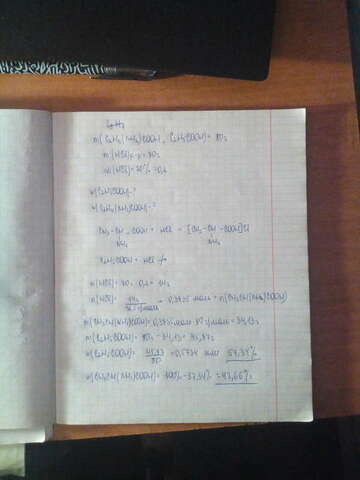 m(C₂H₄(NH₂)COOH, C₂H₅COOH) = 80г
m(HCl)р-р = 70г
w(HCl) = 20% = 0,2
w(C₂H₅COOH) - ?
w(C₂H₄(NH₂)COOH) - ?
CH₃-CH-COOH + HCl = [CH₃-CH-COOH]Cl
NH₂ NH₃
C₂H₅COOH + HCl ≠
m(HCl) = 70 · 0,2 = 14г
n(HCl) = 14г / 36,5 г/моль = 0,3835 моль = n(CH₃CH(NH₂)COOH)
m(CH₃CH(NH₂)COOH) = 0,3835 моль · 89 г/моль = 34,13г
m(C₂H₅COOH) = 80г - 34,13 = 45,87г
w(C₂H₅COOH) = 45,87 / 80 = 0,5734 или 57,34%
w(CH₃CH(NH₂)COOH) = 100% - 57,34% = 42,66%